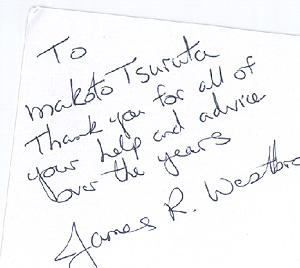 To
Makoto Tsuruta
Thank you for all of
your help and advice
over the years
James R.